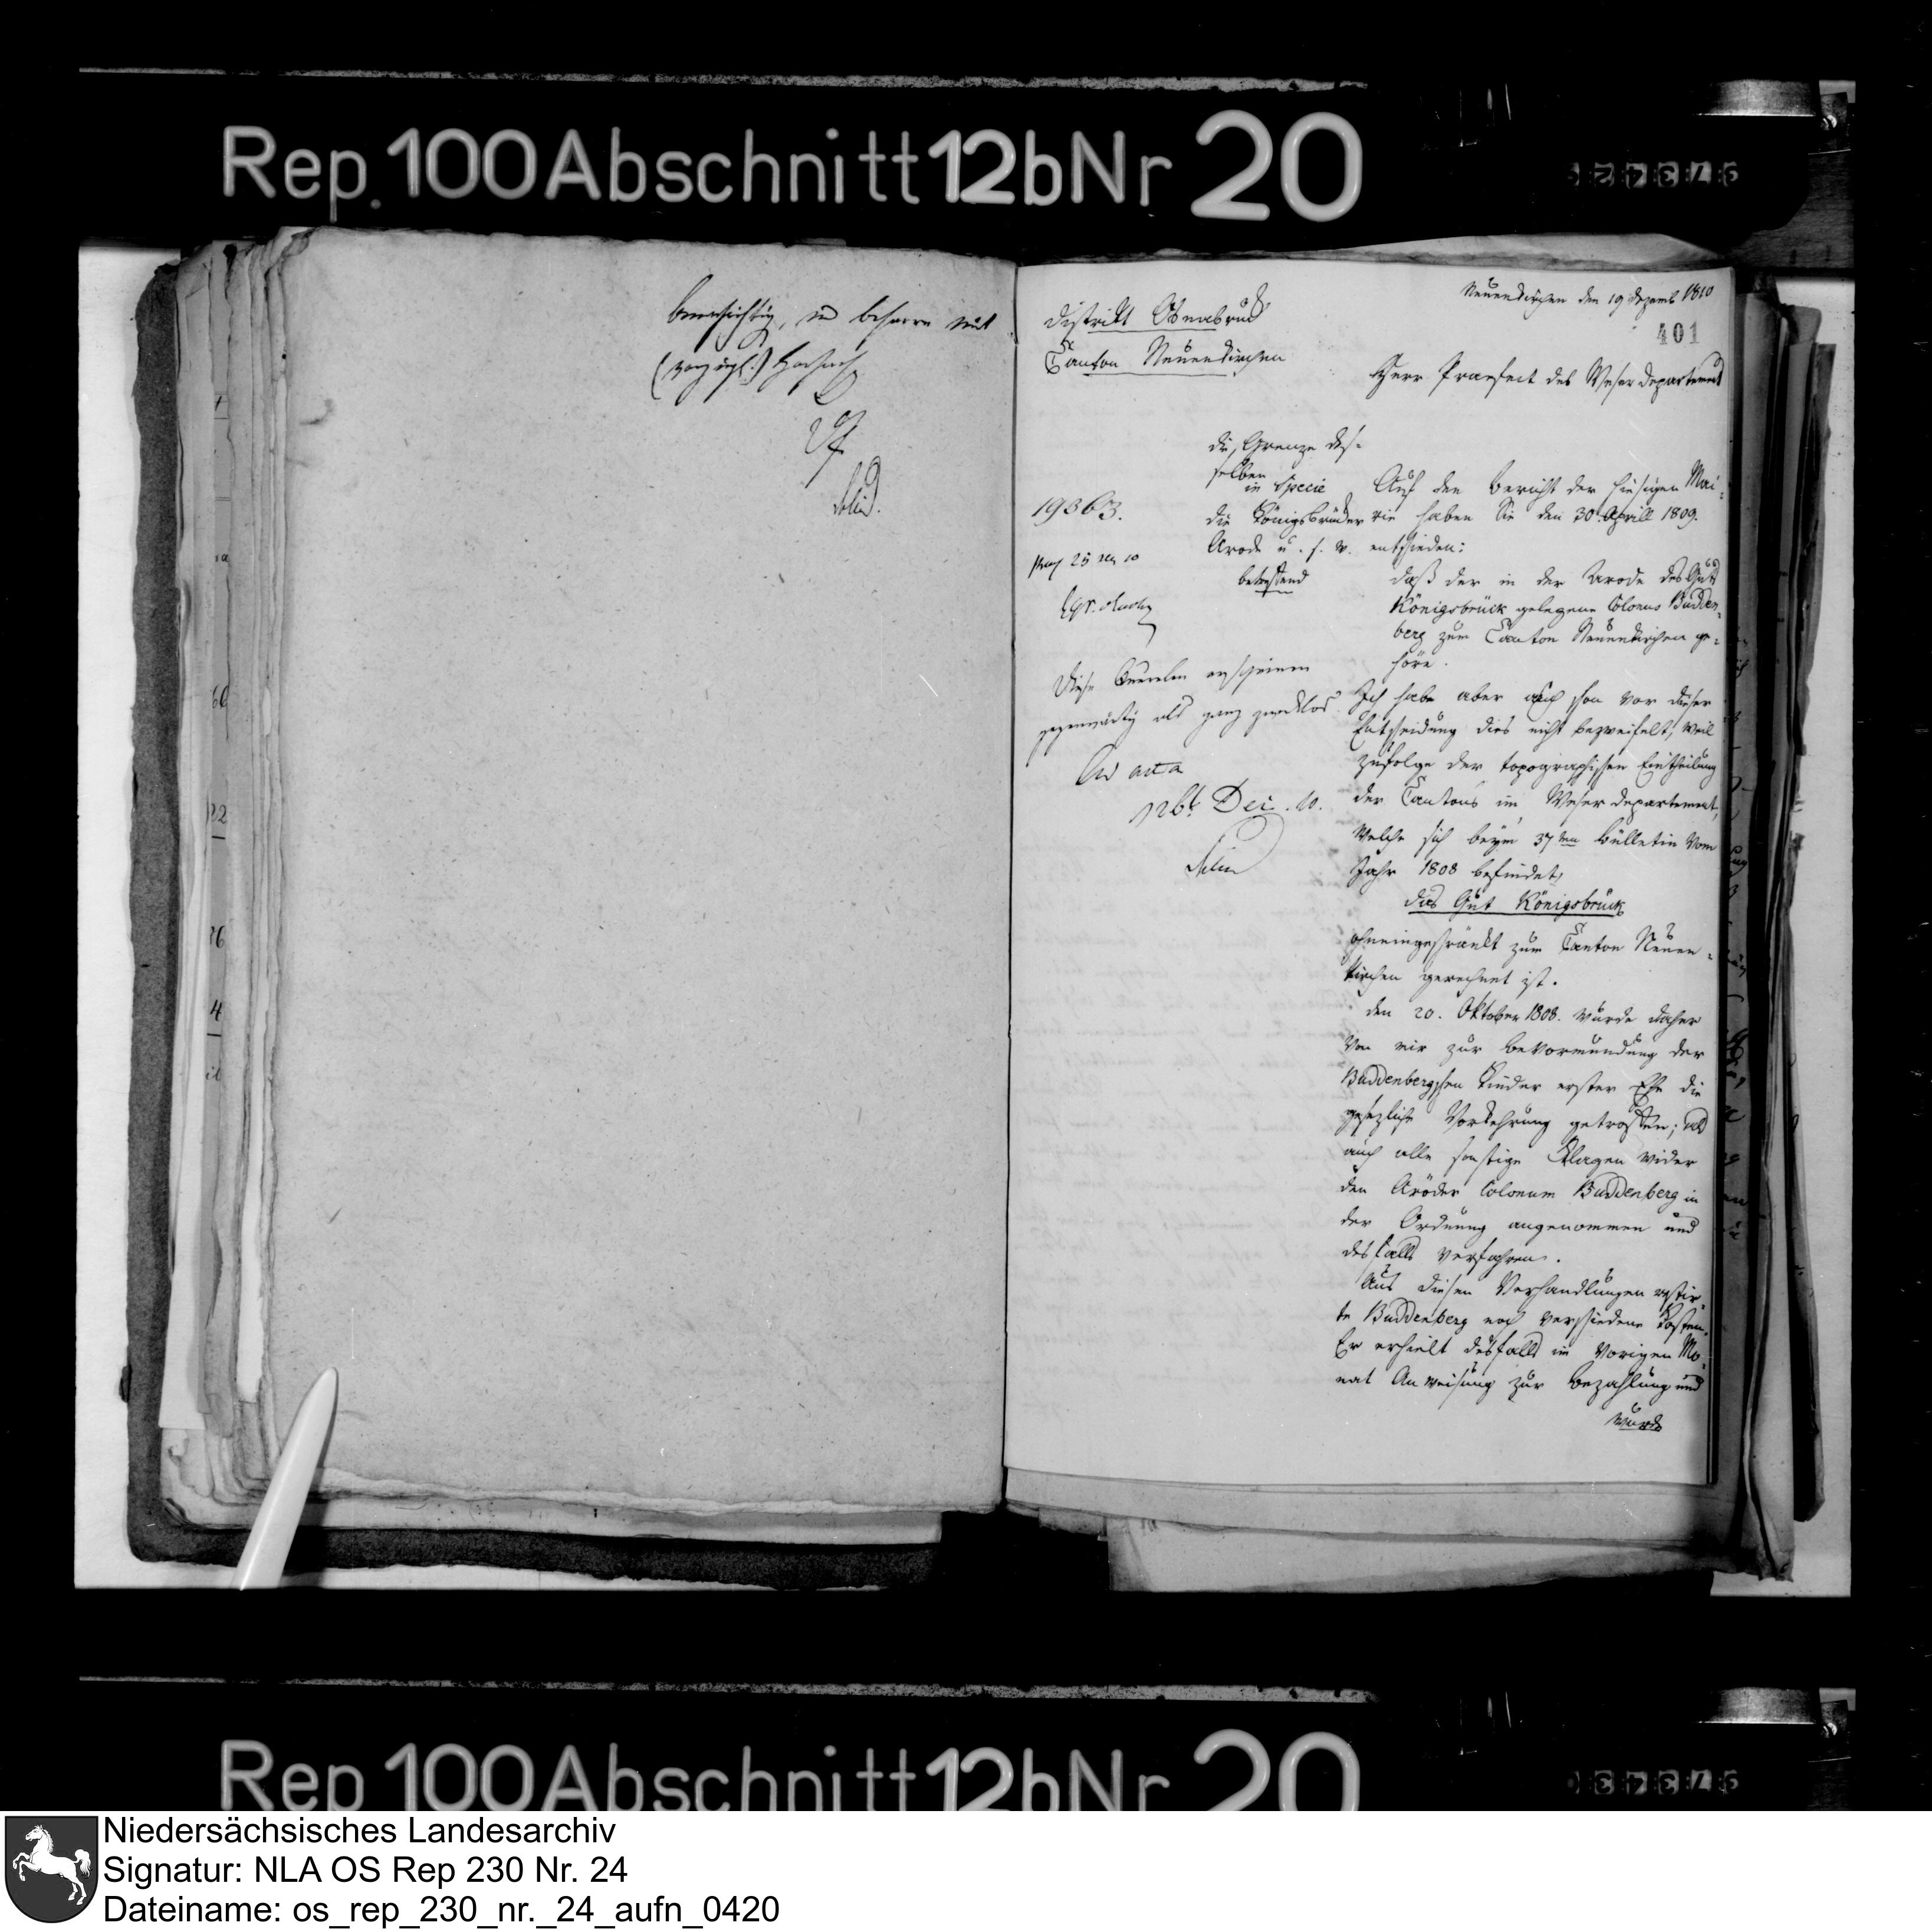 Rep. 100 Abschnitt 12b Nr 20
benachrichtig, u beharre mit
(vorzügl.) Hochach
Distrikt Osnabrück
Canton Neuenkirchen
Neuenkirchen den 19 Dezemb 1810
401
Herr Praefect des Weser departement
die Grenze des-
selben
in Specie
die Königsbrücker
Arode u. s. w.
betreffend
19363.
Diese Querelen erscheinen
gegenwärtig als ganz zwecklos
Ad acta
Dec. 10.
Auf den Bericht der hiesigen Mai-
rie haben Sie den 30. Aprill 1809.
entschieden:
daß der in der Arode des Guts
Königsbrück gelegene Colonus Budden-
berg zum Canton Neuenkirchen ge-
höre.
Ich habe aber auch schon vor dieser
Entscheidung dies nicht bezweifelt, weil
zufolge der topographischen Eintheilung
der Cantons im Weser departement,
welche sich beym 37ten Bülletin vom
Jahr 1808 befindet,
das Gut Königsbrück
ohneingeschränkt zum Canton Neuen-
kirchen gerechnet ist.
den 20. Oktober 1808. wurde daher
von mir zur Bevormundung der
Buddenbergschen Kinder erster Ehe die
gesezliche Vorkehrung getroffen; und
auch alle sonstige Klagen wider
den Aröder Colonum Buddenberg in
der Ordnung angenommen und
desfalls verfahren.
Aus diesen Verhandlungen restir-
te Buddenberg noch verschiedene Kosten.
Er erhielt desfalls im vorigen Mo-
nat Anweisung zur Bezahlung und
wurde
Rep 100 Abschnitt 12b Nr 20
Niedersächsisches Landesarchiv
Signatur: NLA OS Rep 230 Nr. 24
Dateiname: os_rep_230_nr._24_aufn_0420